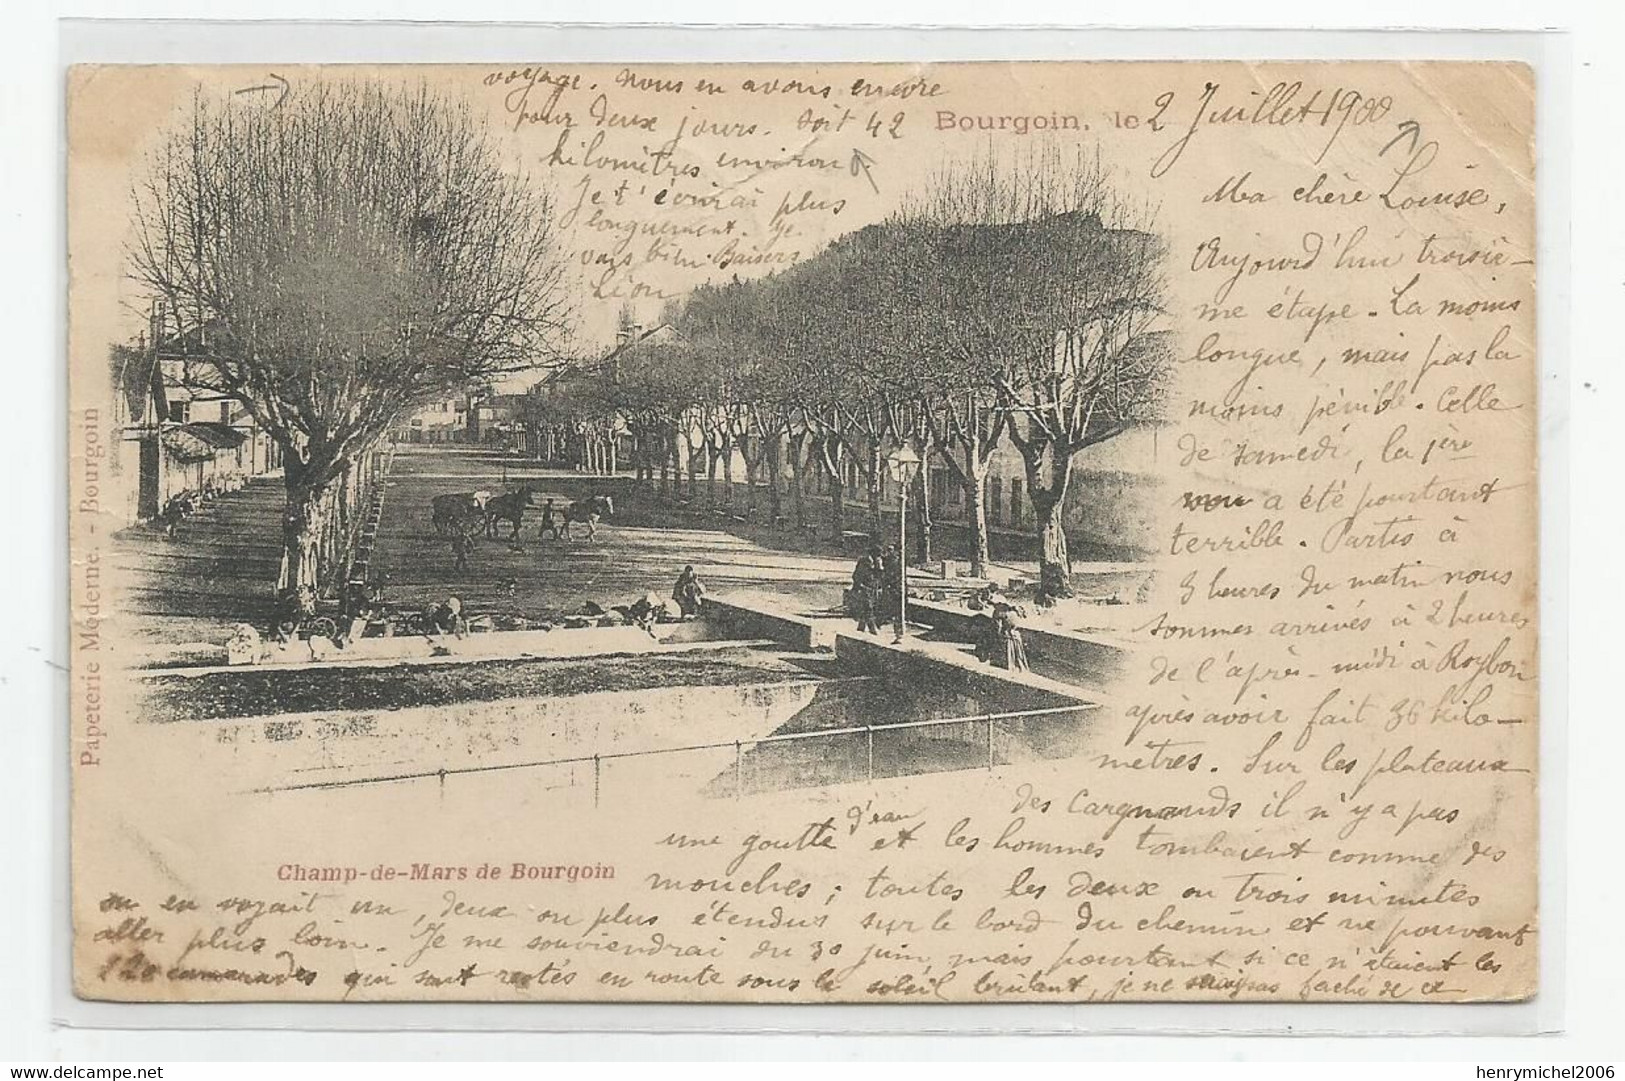 Bourgoin, le 2 Juillet 1900
Ma chère Louise,
Aujourd'hui troisiè-
me étape. La moins
longue, mais pas la
moins pénible. Celle
de samedi, la 1ère
a été pourtant
terrible. Partis à
3 heures du matin nous
sommes arrivés à 2 heures
de l'après-midi à Roybon
après avoir fait 36 kilo-
mètres. Sur les plateaux
des il n'y a pas
une goutte d'eau et les hommes tombaient comme des
mouches ; toutes les deux ou trois minutes
on en voyait un, deux ou plus étendus sur le bord du chemin et ne pouvant
aller plus loin. Je me souviendrai du 30 juin, mais pourtant si ce n'étaient les
120 camarades qui sont restés en route sous le soleil brûlant, je ne serais pas fâché de ce
voyage. Nous en avons encore
pour deux jours. Soit 42
kilomètres environ.
Je t'écrirai plus
longuement. Je
vais bien. Baisers
Léon
Champ-de-Mars de Bourgoin
Papeterie Moderne. - Bourgoin
henrymichel2006